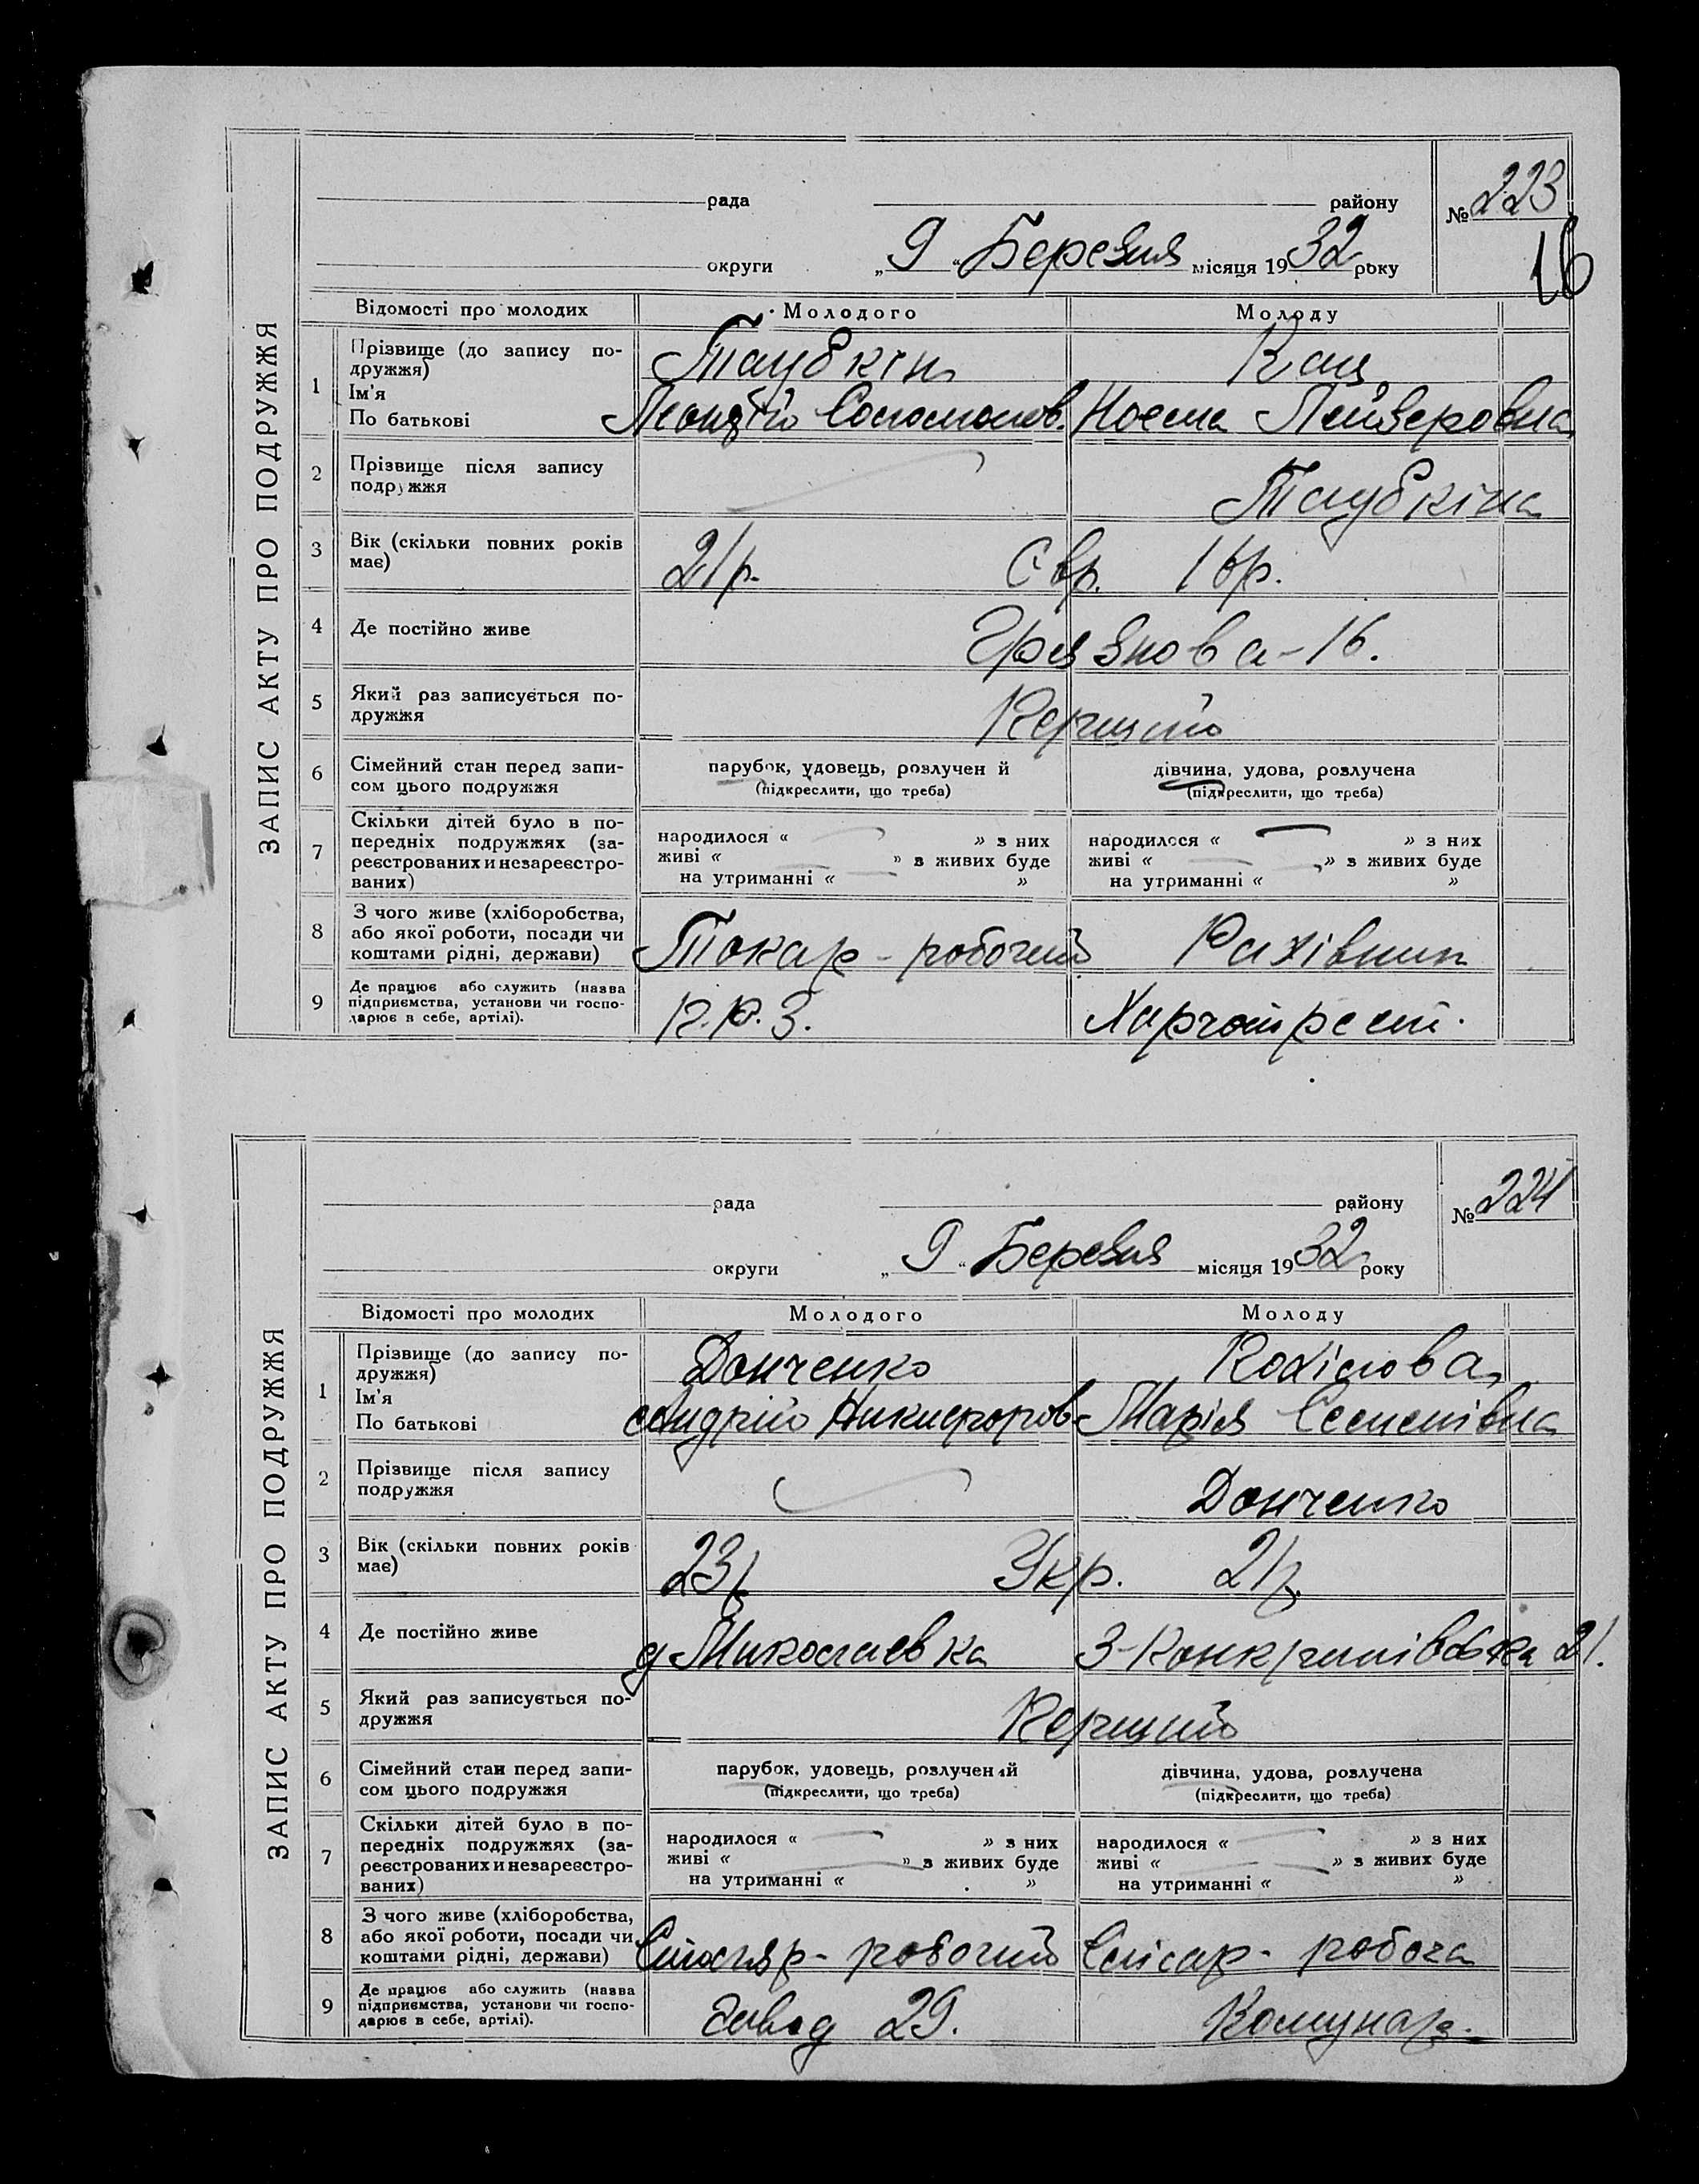 ЗАПИС АКТУ ПРО ПОДРУЖЖЯ
рада району № 223
округи „9“ Березня місяця 1932 року
16
Відомості про молодих Молодого Молоду
1 Прізвище (до запису по-
дружжя) Таубкін Кац
Ім'я
По батькові Леонтій Соломонов. Ноема Лейзеровна
2 Прізвище після запису
подружжя Таубкіна
3 Вік (скільки повних років
має) 21р. Євр. 16р.
4 Де постійно живе Грязнова-16.
5 Який раз записується по-
дружжя Перший
6 Сімейний стан перед запи-
сом цього подружжя
парубок, удовець, розлучен й
(підкреслити, що треба)
дівчина, удова, розлучена
(підкреслити, що треба)
7 Скільки дітей було в по-
передніх подружжях (за-
реєстрованих и незареєстро-
ваних)
народилося « » з них
живі « » з живих буде
на утриманні « »
народилося « » з них
живі « » з живих буде
на утриманні « »
8 З чого живе (хліборобства,
або якої роботи, посади чи
коштами рідні, держави) Токар - робочий Рахівник
9 Де працює або служить (назва
підприємства, установи чи госпо-
дарює в себе, артілі).
П.Р.З. Харчотрест.
ЗАПИС АКТУ ПРО ПОДРУЖЖЯ
рада району № 224
округи „9“ Березня місяця 1932 року
Відомості про молодих Молодого Молоду
1 Прізвище (до запису по-
дружжя) Донченко
Ім'я
По батькові Андрій Никифоров. Марія Семенівна
2 Прізвище після запису
подружжя Донченко
3 Вік (скільки повних років
має) 23р Укр. 21р.
4 Де постійно живе д Миколаевка 21.
5 Який раз записується по-
дружжя Перший
6 Сімейний стан перед запи-
сом цього подружжя
парубок, удовець, розлучений
(підкреслити, що треба)
дівчина, удова, розлучена
(підкреслити, що треба)
7 Скільки дітей було в по-
передніх подружжях (за-
реєстрованих и незареєстро-
ваних)
народилося « » з них
живі « » з живих буде
на утриманні « »
народилося « » з них
живі « » з живих буде
на утриманні « »
8 З чого живе (хліборобства,
або якої роботи, посади чи
коштами рідні, держави) Столяр - робочий Слісар - робоча
9 Де працює або служить (назва
підприємства, установи чи госпо-
дарює в себе, артілі).
Завод 29. Комунар.